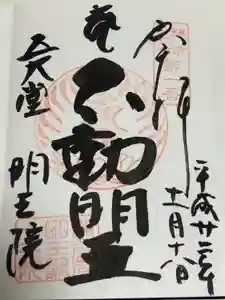 奉拝
平成廿三年
十一月十八日
不動明王
五大堂
明王院